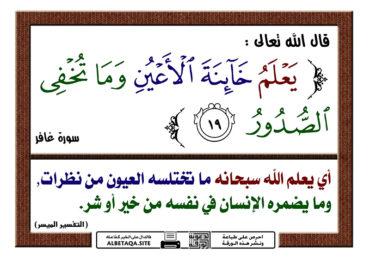 قال الله تعالى :
﴿ يَعْلَمُ خَآئِنَةَ ٱلْأَعْيُنِ وَمَا تُخْفِى
ٱلصُّدُورُ ١٩ ﴾
سورة غافر
أي يعلم الله سبحانه ما تختلسه العيون من نظرات,
وما يضمره الإنسان في نفسه من خير أو شر.
( التفسير الميسر )
احرص على طباعة
ونشر هذه الورقة
فالدال على الخير كفاعله
ALBETAQA.SITE